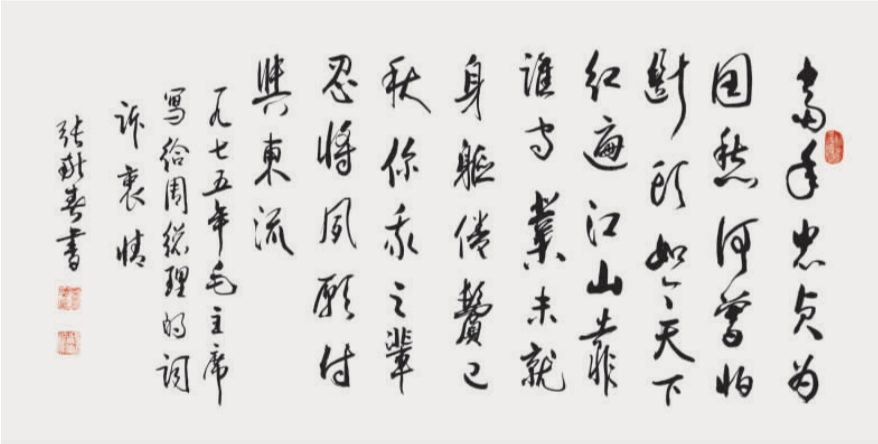 當年忠贞为
国愁何曾怕
断头如今天下
红遍江山靠
谁守業未就
身軀倦鬢已
秋你我之輩
忍将夙願付
與東流
一九七五年毛主席
寫给周總理的词
诉衷情
张春書